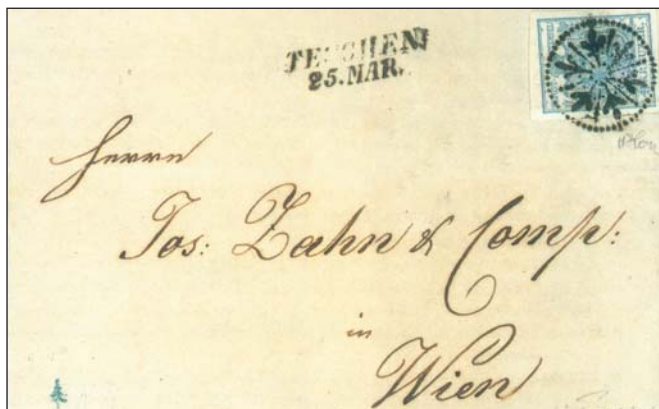 TESCHEN
25.MAR.
Herrn
Jos: Zahn & Comp:
in
Wien